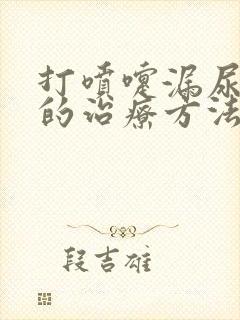 打喷嚏漏尿
的治疗方法
段吉雄